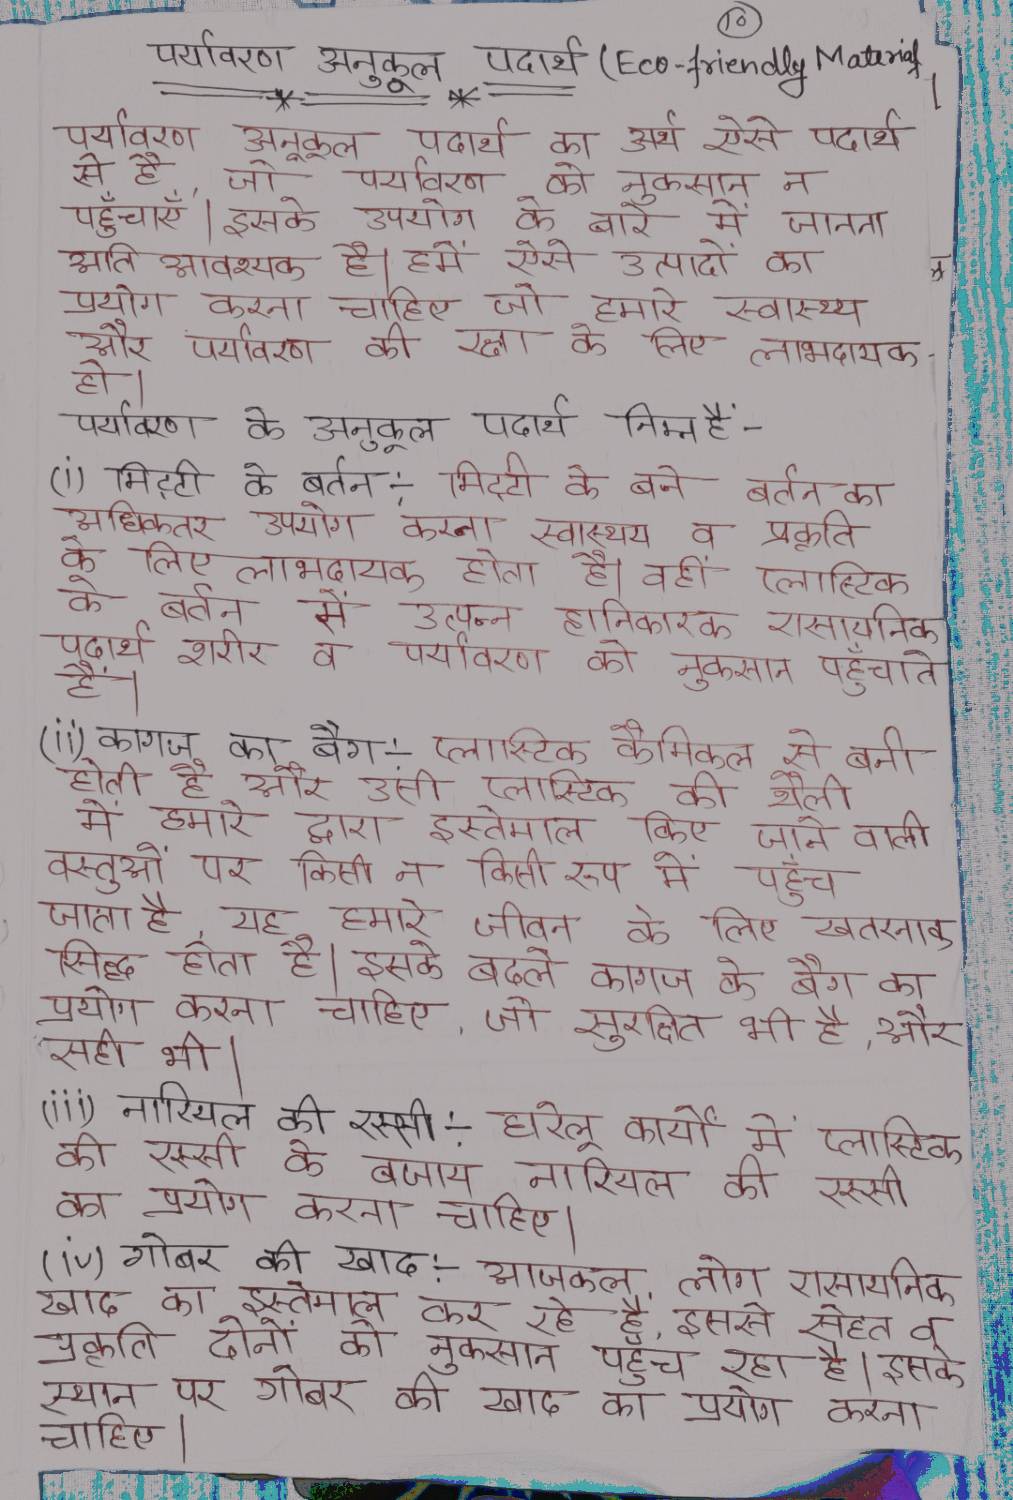 10
पर्यावरण अनुकूल पदार्थ (Eco-friendly Material)
पर्यावरण अनूकूल पदार्थ का अर्थ ऐसे पदार्थ
से है, जो पर्यावरण को नुकसान न
पहुँचाएँ। इसके उपयोग के बारे में जानना
अति आवश्यक है। हमें ऐसे उत्पादों का
प्रयोग करना चाहिए जो हमारे स्वास्थ्य
और पर्यावरण की रक्षा के लिए लाभदायक
हो।
पर्यावरण के अनुकूल पदार्थ निम्न हैं-
(i) मिट्टी के बर्तन :- मिट्टी के बने बर्तन का
अधिकतर उपयोग करना स्वास्थय व प्रकृति
के लिए लाभदायक होता है। वहीं प्लास्टिक
के बर्तन में उत्पन्न हानिकारक रासायनिक
पदार्थ शरीर व पर्यावरण को नुकसान पहुँचाते
हैं।
(ii) कागज का बैग :- प्लास्टिक कैमिकल से बनी
होती है और उसी प्लास्टिक की थैली
में हमारे द्वारा इस्तेमाल किए जाने वाली
वस्तुओं पर किसी न किसी रूप में पहुँच
जाता है, यह हमारे जीवन के लिए खतरनाक
सिद्ध होता है। इसके बदले कागज के बैग का
प्रयोग करना चाहिए, जो सुरक्षित भी है, और
सही भी।
(iii) नारियल की रस्सी :- घरेलू कार्यों में प्लास्टिक
की रस्सी के बजाय नारियल की रस्सी
का प्रयोग करना चाहिए।
(iv) गोबर की खाद :- आजकल, लोग रासायनिक
खाद का इस्तेमाल कर रहे है, इससे सेहत व
प्रकृति दोनों को नुकसान पहुँच रहा है। इसके
स्थान पर गोबर की खाद का प्रयोग करना
चाहिए।